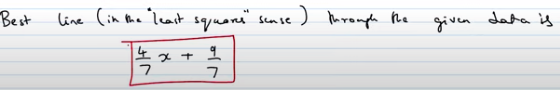 Best line (in the "least squares" sense) through the given data is
4/7 x + 9/7